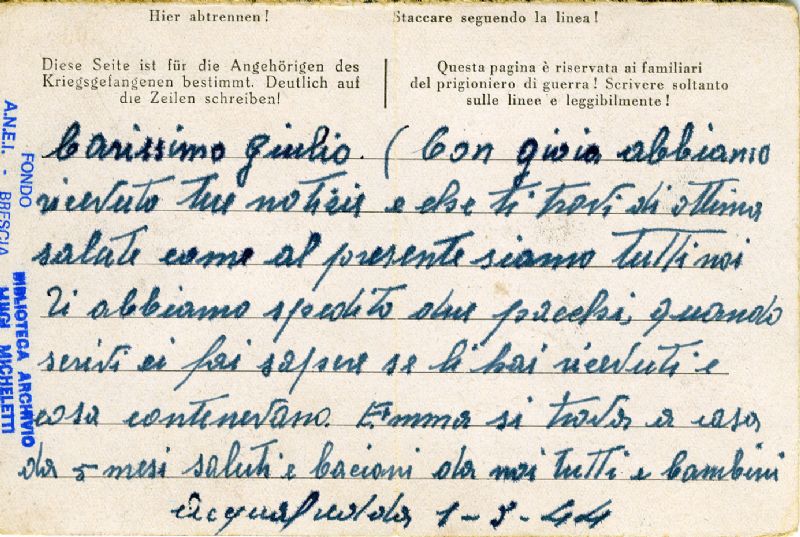 Hier abtrennen!
Staccare seguendo la linea!
Diese Seite ist für die Angehörigen des
Kriegsgefangenen bestimmt. Deutlich auf
die Zeilen schreiben!
Questa pagina è riservata ai familiari
del prigioniero di guerra! Scrivere soltanto
sulle linee e leggibilmente!
Carissimo Giulio. (Con gioia abbiamo
ricevuto tue notizie e che ti trovi di ottima
salute come al presente siamo tutti noi
Ti abbiamo spedito due pacchi, quando
scrivi ci fai sapere se li hai ricevuti e
cosa contenevano. Emma si trova a casa
da 5 mesi saluti e bacioni da noi tutti e bambini
1- -44
FONDO
A.N.E.I. - BRESCIA
BIBLIOTECA ARCHIVIO
LUIGI MICHELETTI